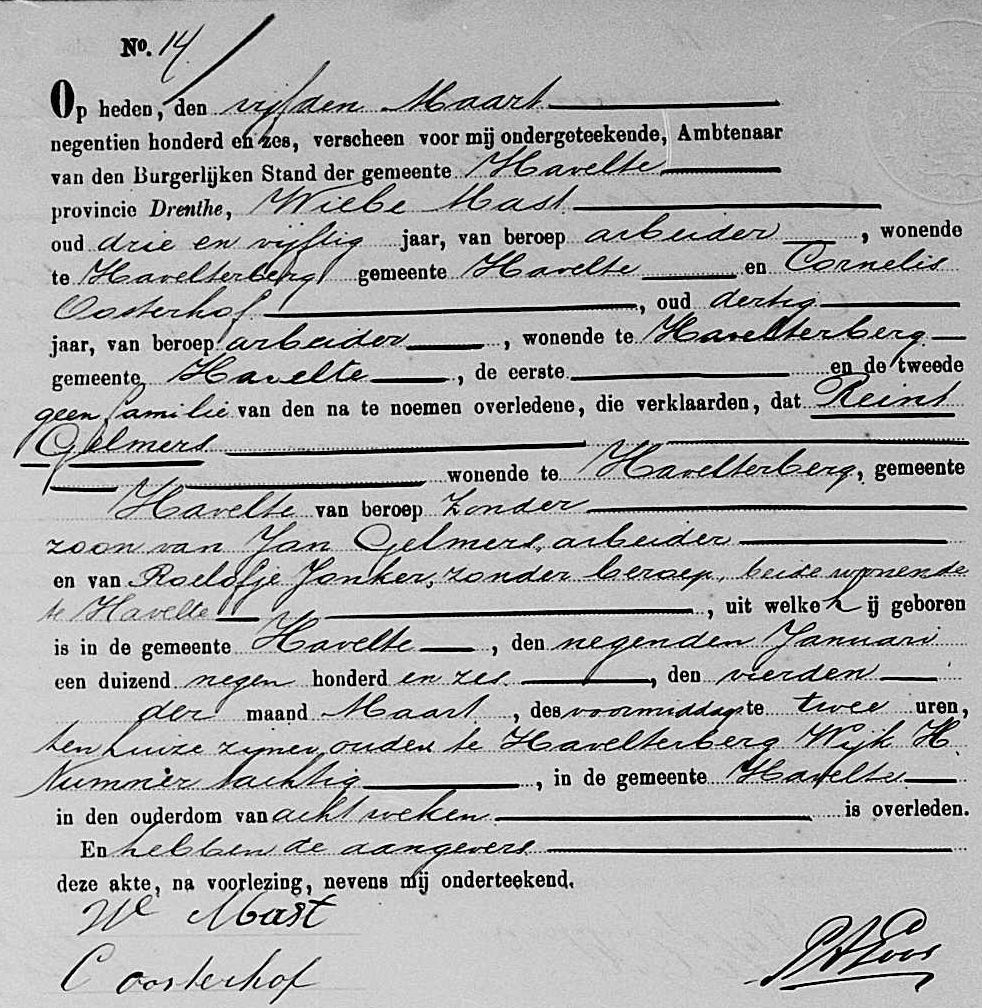 No. 14
Op heden, den vijfden Maart
negentien honderd en zes, verscheen voor mij ondergeteekende, Ambtenaar
van den Burgerlijken Stand der gemeente Havelte
provincie Drenthe, Wiebe Mast
oud drie en vijftig jaar, van beroep arbeider, wonende
te Havelterberg gemeente Havelte en Cornelis
Oosterhof, oud dertig
jaar, van beroep arbeider, wonende te Havelterberg
gemeente Havelte, de eerste en de tweede
geen familie van den na te noemen overledene, die verklaarden, dat Reint
Gelmers
wonende te Havelterberg, gemeente
Havelte van beroep zonder
zoon van Jan Gelmers, arbeider
en van Roelofje Jonker, zonder beroep, beide wonende
te Havelte, uit welke hij geboren
is in de gemeente Havelte, den negenden Januari
een duizend negen honderd en zes, den vierden
der maand Maart, des voormiddags te twee uren,
ten huize zijner ouders te Havelterberg Wijk H.
Nummer tachtig, in de gemeente Havelte
in den ouderdom van acht weken is overleden.
En hebben de aangevers
deze akte, na voorlezing, nevens mij onderteekend.
W Mast
C oosterhof